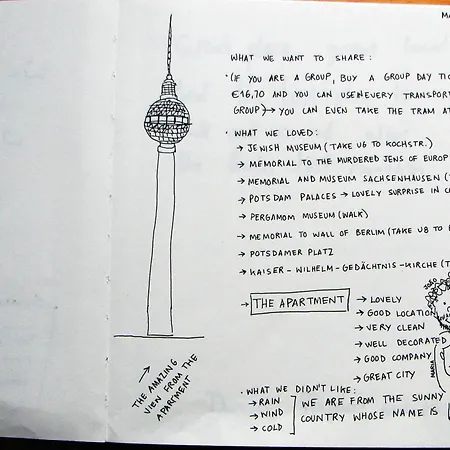 MA
WHAT WE WANT TO SHARE:
· (IF YOU ARE A GROUP, BUY A GROUP DAY TIC
€16,70 AND YOU CAN USE EVERY TRANSPOR
GROUP) → YOU CAN EVEN TAKE THE TRAM AT
· WHAT WE LOVED:
→ JENISH MUSEUM (TAKE U6 TO KOCHSTR.)
→ MEMORIAL TO THE MURDERED JENS OF EUROP
→ MEMORIAL AND MUSEUM SACHSENHAUSEN (T
→ POTSDAM PALACES → LOVELY SURPRISE IN C
→ PERGAMOM MUSEUM (WALK)
→ MEMORIAL TO WALL OF BERLIM (TAKE U8 TO
→ POTSDAMER PLATZ
→ KAISER-WILHELM-GEDÄCHTNIS-KIRCHE (T
→ THE APARTMENT → LOVELY
→ GOOD LOCATION
→ VERY CLEAN
→ WELL DECORATED
→ GOOD COMPANY
→ GREAT CITY
MARIA
→ THE AMAZING
VIEW FROM THE
APARTMENT
· WHAT WE DIDN'T LIKE:
→ RAIN
→ WIND
→ COLD
WE ARE FROM THE SUNNY
COUNTRY WHOSE NAME IS